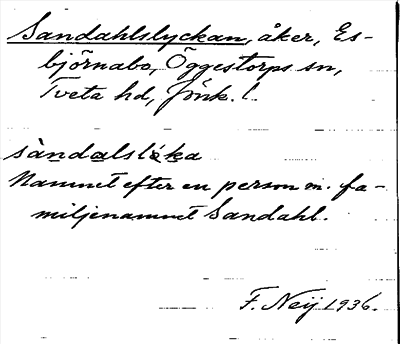 Sandahlslyckan, åker, Es-
björnabo, Öggestorps sn,
Tveta hd, Jönk. l.
sàndalslɵ́ka
Namnet efter en person m. fa-
miljenamnet Sandahl.
F. Neij 1936.